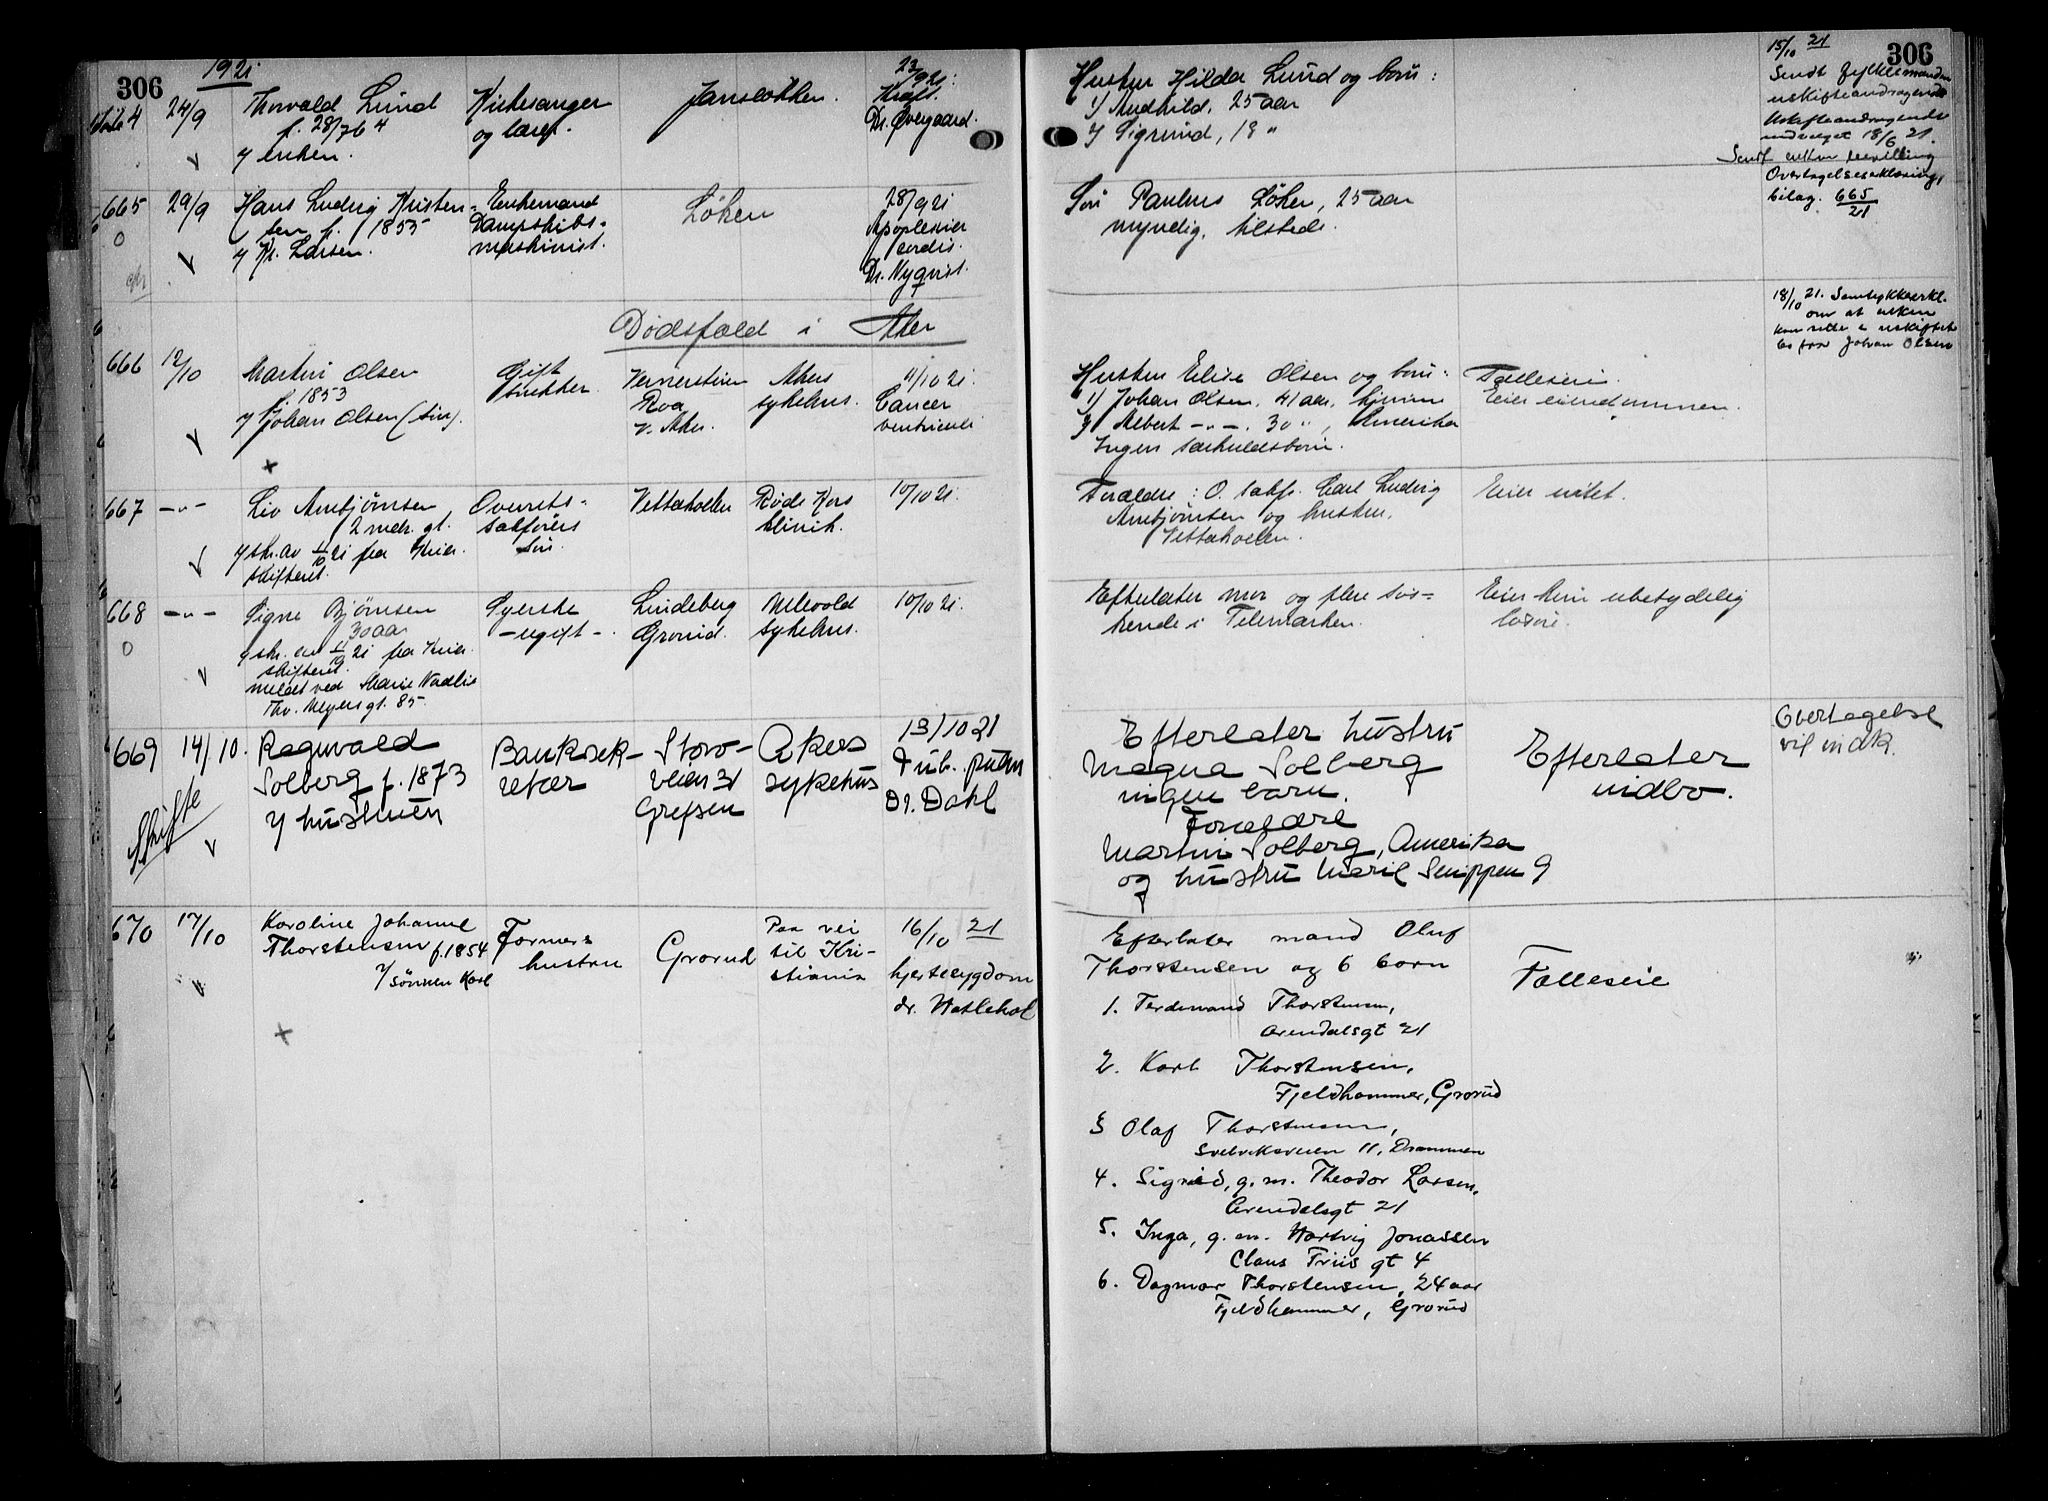 306
1921
4
24/9
Thorvald Lund
f. 28/4 76
v/ enken.
Kirkesanger
og lærer.
Jansløkken.
23/9 21.
Kræft.
Dr. Overgaard.
665
29/9
Hans Ludvig Kristen-
sen f. 1855
v/ Kr. Larsen.
Enkemand
Dampskibs-
maskinist.
Løken
28/9 21
Apoplexia
cordis.
Dr. Nyqvist.
Dødsfald i Aker
666
12/10
Martin Olsen
f. 1853
v/ Johan Olsen (søn).
Gift
snekker.
Roa
V. Aker.
Akers
sykehus.
11/10 21.
Cancer
ventriculi
667
-"-
Liv Arnbjørnsen
2 mdr. gl.
v/ skr. av 11/10 21 fra Kria.
skifteret.
Overrets-
sakførers
Vettakollen
Røde Kors
klinik.
10/10 21.
668
-"-
Signe Bjørnsen
30 aar
v/ skr. av 11/10 21 fra Kria.
skifteret.
meldt ved Marie
Thv. Meyers gt. 85.
Syerske
- ugift -
Lindeberg
Grorud.
Ullevold
sykehus.
10/10 21.
669
14/10.
Skifte
Ragnvald
Solberg f. 1873
v/ hustruen
Banksek-
retær
Storo-
veien 31
Grefsen
Akers
sykehus
13/10 21
Tub. pulm
Dr. Dahl
670
17/10
Karoline Johanne
Thorstensen f. 1854
v/ sønnen Karl
Formers
hustru
Grorud
Paa vei
til Kri-
stiania
16/10 21
hjertesygdom
dr. Watlehol
306
Hustru Hilda Lund og børn:
1) Audhild, 25 aar
2) Sigrund, 18 "
15/10 21
Sendt fylkesmanden
uskifteandragende
Uskifteandragende
18/6 21.
Sendt enken bevilling
Overtagelseserklæring,
bilag. 665/21
Søn Paulus Løken, 25 aar
myndig, tilstede.
18/10 21. Samtykkeerkl.
om at enken
kan sitte i uskiftet
bo fra Johan Olsen
Hustru Elise Olsen og børn:
1) Johan Olsen, 41 aar, hjemme
2) Albert -"-, 30 ", Amerika
Ingen særkuldsbørn.
Fælleseie.
Eier eiendommen.
Forældre: O. sakf. Carl Ludvig
Arnbjørnsen og hustru,
Vettakollen.
Eier intet.
Efterlater mor og flere søs-
kende i Telemarken.
Eier kun ubetydelig
løsøre.
Efterlater hustru
Magna Solberg
ingen barn.
Forældre
Martin Solberg, Amerika
og hustru Marie Snippen 9
Efterlater
indbo.
Overtagelse
vil indk.
Efterlater mand Oluf
Thorstensen og 6 barn
1. Ferdinand Thorstensen,
Arendalsgt 21
2. Karl Thorstensen,
Fjeldhammer, Grorud
3 Olaf Thorstensen,
Svelviksveien 11, Drammen
4. Sigrid, g. m. Theodor Larsen,
Arendalsgt 21
5. Inga, g. m. Hartvig Jonassen
Claus Friis gt 4
6. Dagmar Thorstensen, 24 aar
Fjeldhammer, Grorud
Fælleseie